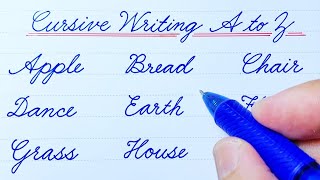 Cursive Writing A to Z
Apple Bread Chair
Dance Earth
Grass House